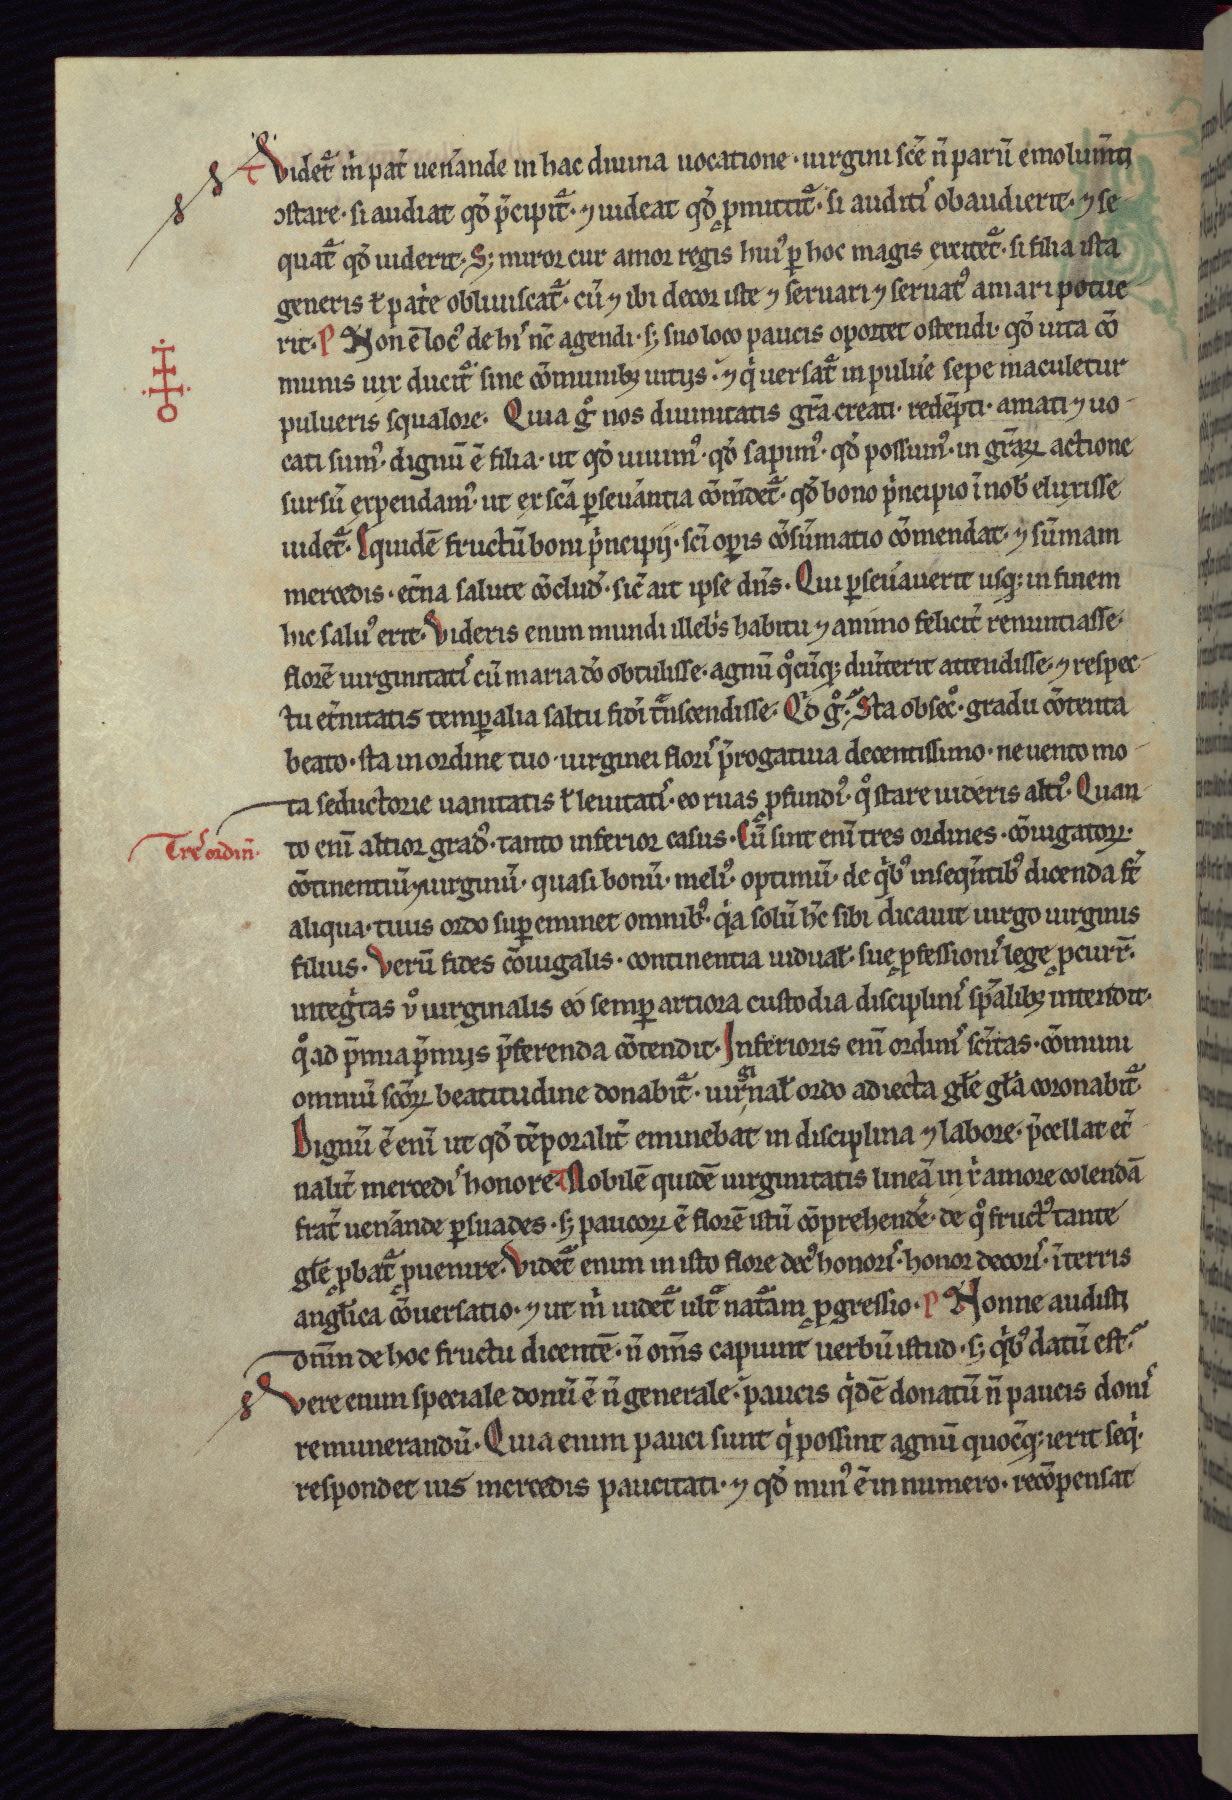 Videt᷑ m̍ pat̄ uen̄ande in hac diuina uocatione · uirgini sc̄e n̄ parū emolum̄ti
ꝯstare · si audiat qd̄ p̄cipit᷑ · ⁊ uideat qd̄ ꝓmittit᷑ · si auditis obaudierit · ⁊ se
quat᷑ qd̄ uiderit · Sꝫ miror cur amor regis huiꝰ ꝑ hoc magis excitet᷑ · si filia ista
generis ł pat̄e obliuiscat᷑ · cū ⁊ ibi decor iste ⁊ seruari ⁊ seruatꝰ amari potue
rit · P Non ē locꝰ de his nc̄ agendi · sꝫ suo loco paucis oportet ostendi · qd̄ uita cō
munis uix ducit᷑ sine cōmunibꝫ uitijs · ⁊ q̍ uersat᷑ in puluēe sepe maculetur
pulueris squalore · Quia gͦ nos diuinitatis gr̄a creati · redēpti · amati ⁊ uo
cati sumꝰ · dignū ē filia · ut qd̄ uiuimꝰ · qd̄ sapimꝰ · qd̄ possumꝰ · in gr̄aꝝ actione
sursū expendamꝰ · ut ex sc̄a ꝑseuāntia cōm̄det᷑ · qd̄ bono p̍ncipio ī nob̄ eluxisse
uidet᷑ · Siquidē fructū boni p̍ncipij · sc̄i oꝑis cōsūmatio cōmendat · ⁊ sūmam
mercedis · et̄na salute cōcludit · sic̄ ait ipse dn̄s · Qui ꝑseūauerit usqꝫ in finem
hic saluꝰ erit · Videris enim mundi illeb̄s habitu ⁊ animo felicit̄ renuntiasse ·
florē uirginitatis cū maria dō obtulisse · agnū qͦcūqꝫ dux̄erit attendisse · ⁊ respec
tu et̄nitatis temꝑalia saltu fidī t᷑nscendisse · Qd̄ gͦ · Sta obsecͦ · gradu cōtenta
beato · sta in ordine tuo · uirginei floris p̄rogatiua decentissimo · ne uento mo
ta seductorie uanitatis ł leuitatis · eo ruas ꝓfundiꝰ · qͦ stare uideris altiꝰ · Quan
to eni᷑ altior gradꝰ · tanto inferior casus · Cū sint eni᷑ tres ordines · cōiugatoꝝ ·
Tres ordin̄ ·
cōtinentiū ⁊ uirginū · quasi bonū · meliꝰ · optimū · de q̍bꝰ inseqn̄tibꝰ dicenda st̄
aliqua · tuus ordo suꝑeminet omnibꝰ · q̍a solū hc̄ sibi dicauit uirgo uirginis
filius · Verū fides cōiugalis · continentia uidual̄ · sue ꝓfessionis lege ꝓcurr̄ ·
integ̍tas uͦ uirginalis eo semꝑ artiora custodia disciplinis spālibꝫ intendit ·
qͦ ad p̄mia p̄mijs p̄ferenda cōtendit · Inferioris eni᷑ ordinis sc̄itas · cōmuni
omniū sc̄oꝝ beatitudine donabit᷑ · uirginal̄ ordo adiecta gl̄e gl̄a coronabit᷑
Dignū ē eni᷑ ut qd̄ tēporalit̄ eminebat in disciplina ⁊ labore · p̄cellat et̄
nalit̄ mercedis honore · Nobilē quidē uirginitatis lineā in x̄ amore colendā
frat̄ uen̄ande ꝑsuades · sꝫ paucoꝝ ē florē istū cōprehend̄e · de qͦ fructꝰ tante
gl̄e ꝓbat᷑ ꝓuenire · Videt᷑ enim in isto flore decꝰ honoris · honor decoris · ī terris
angl̄ica cōuersatio · ⁊ ut m̍ uidet᷑ ult᷑ nat᷑am ꝓgressio · P Nonne audisti
dnm̄ de hoc fructu dicentē · n̄ oms̄ capiunt uerbū istud · sꝫ q̍bꝰ datū est ·
Vere enim speciale donū ē n̄ generale · paucis q̍dē donatū n̄ paucis donis
remunerandū · Quia enim pauci sunt q̍ possint agnū quoc̄qꝫ ierit seq̍ ·
respondet ius mercedis paucitati · ⁊ qd̄ minꝰ ē in numero · recōpensat